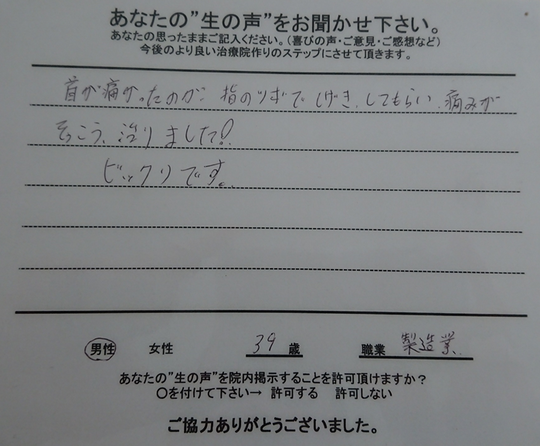 あなたの"生の声"をお聞かせ下さい。
あなたの思ったままご記入ください。(喜びの声・ご意見・ご感想など)
今後のより良い治療院作りのステップにさせて頂きます。
首が痛かったのが、指のツボでしげき、してもらい、痛みが
そっこう、治りました!!
ビックリです。
男性 女性 39歳 職業 製造業
あなたの"生の声"を院内掲示することを許可頂けますか?
〇を付けて下さい→ 許可する 許可しない
ご協力ありがとうございました。